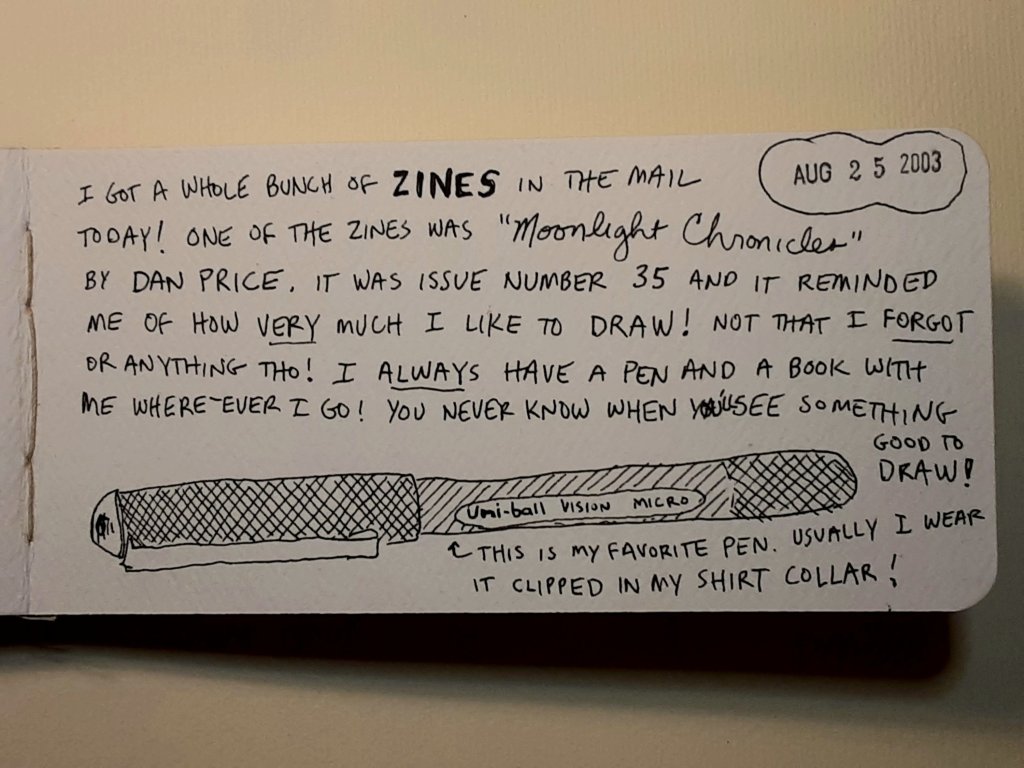 AUG 25 2003
I GOT A WHOLE BUNCH OF ZINES IN THE MAIL
TODAY! ONE OF THE ZINES WAS "Moonlight Chronicles"
BY DAN PRICE. IT WAS ISSUE NUMBER 35 AND IT REMINDED
ME OF HOW VERY MUCH I LIKE TO DRAW! NOT THAT I FORGOT
OR ANYTHING THO! I ALWAYS HAVE A PEN AND A BOOK WITH
ME WHERE-EVER I GO! YOU NEVER KNOW WHEN YOU'LL SEE SOMETHING
GOOD TO
DRAW!
uni-ball VISION MICRO
THIS IS MY FAVORITE PEN. USUALLY I WEAR
IT CLIPPED IN MY SHIRT COLLAR!